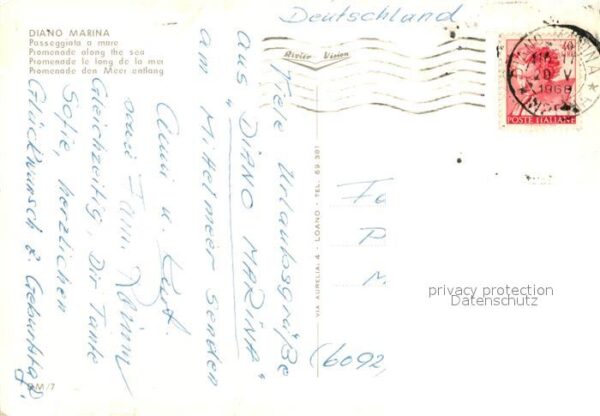 DIANO MARINA
Passeggiata a mare
Promenade along the sea
Promenade le long de la mer
Promenade den Meer entlang
Viele Urlaubsgrüße
aus "DIANO MARINA"
am Mittelmeer senden
Anni u. Kurt.
Gleichzeitig, Dir Tante
Sofie, herzlichen
Glückwunsch z. Geburtstag
DM/7
Rivier Vision
VIA AURELIA, 4 - LOANO - TEL. 69 381
Deutschland
DIANO MARINA
20 V
1968
POSTE ITALIANE
Fa
P
M
(6092,
privacy protection
Datenschutz